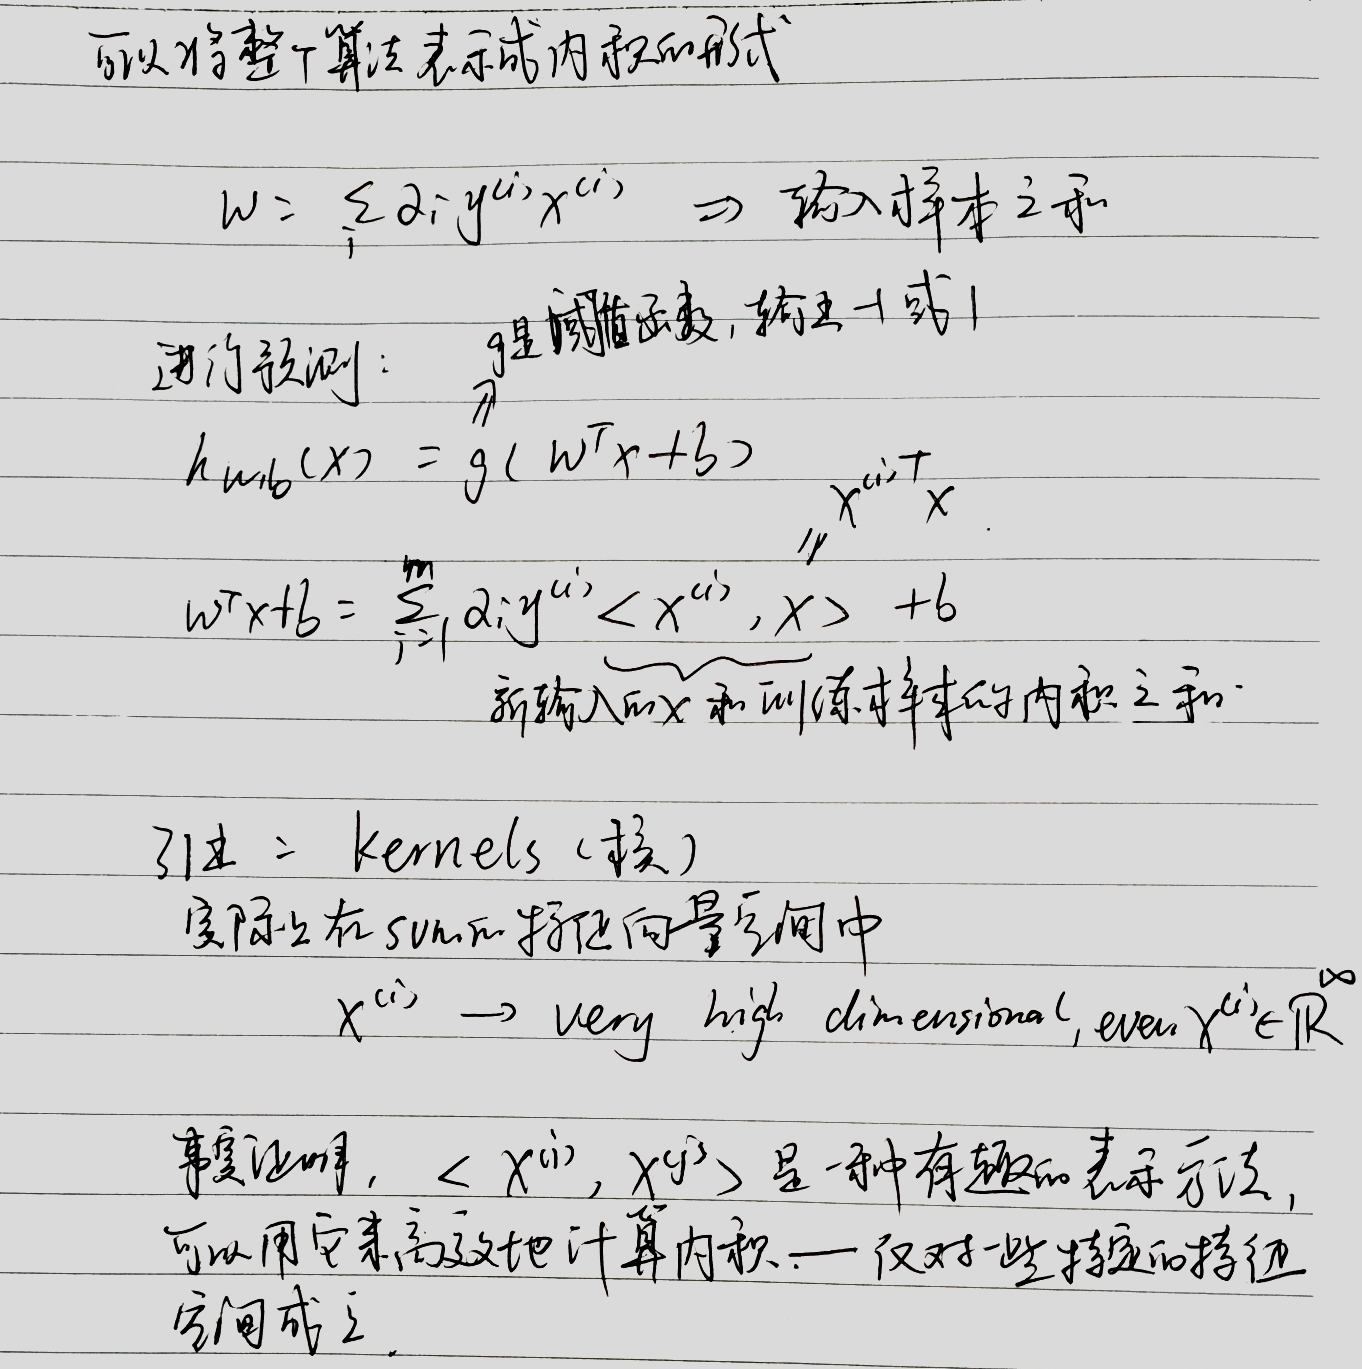 可以将整个算法表示成内积的形式
w = Σ_i α_i y^(i) x^(i) ⇒ 输入样本之和
g是阈值函数, 输出 -1 或 1
进行预测:
h_w,b(x) = g(w^T x + b)
x^(i)T x
w^T x + b = Σ_{i=1}^m α_i y^(i) <x^(i), x> + b
新输入的x和训练样本的内积之和.
引出: kernels (核)
实际上在svm的特征向量空间中
x^(i) → very high dimensional, even x^(i) ∈ ℝ^∞
事实证明, <x^(i), x^(j)> 是一种有趣的表示方法,
可以用它来高效地计算内积. — 仅对一些特定的特征
空间成立.